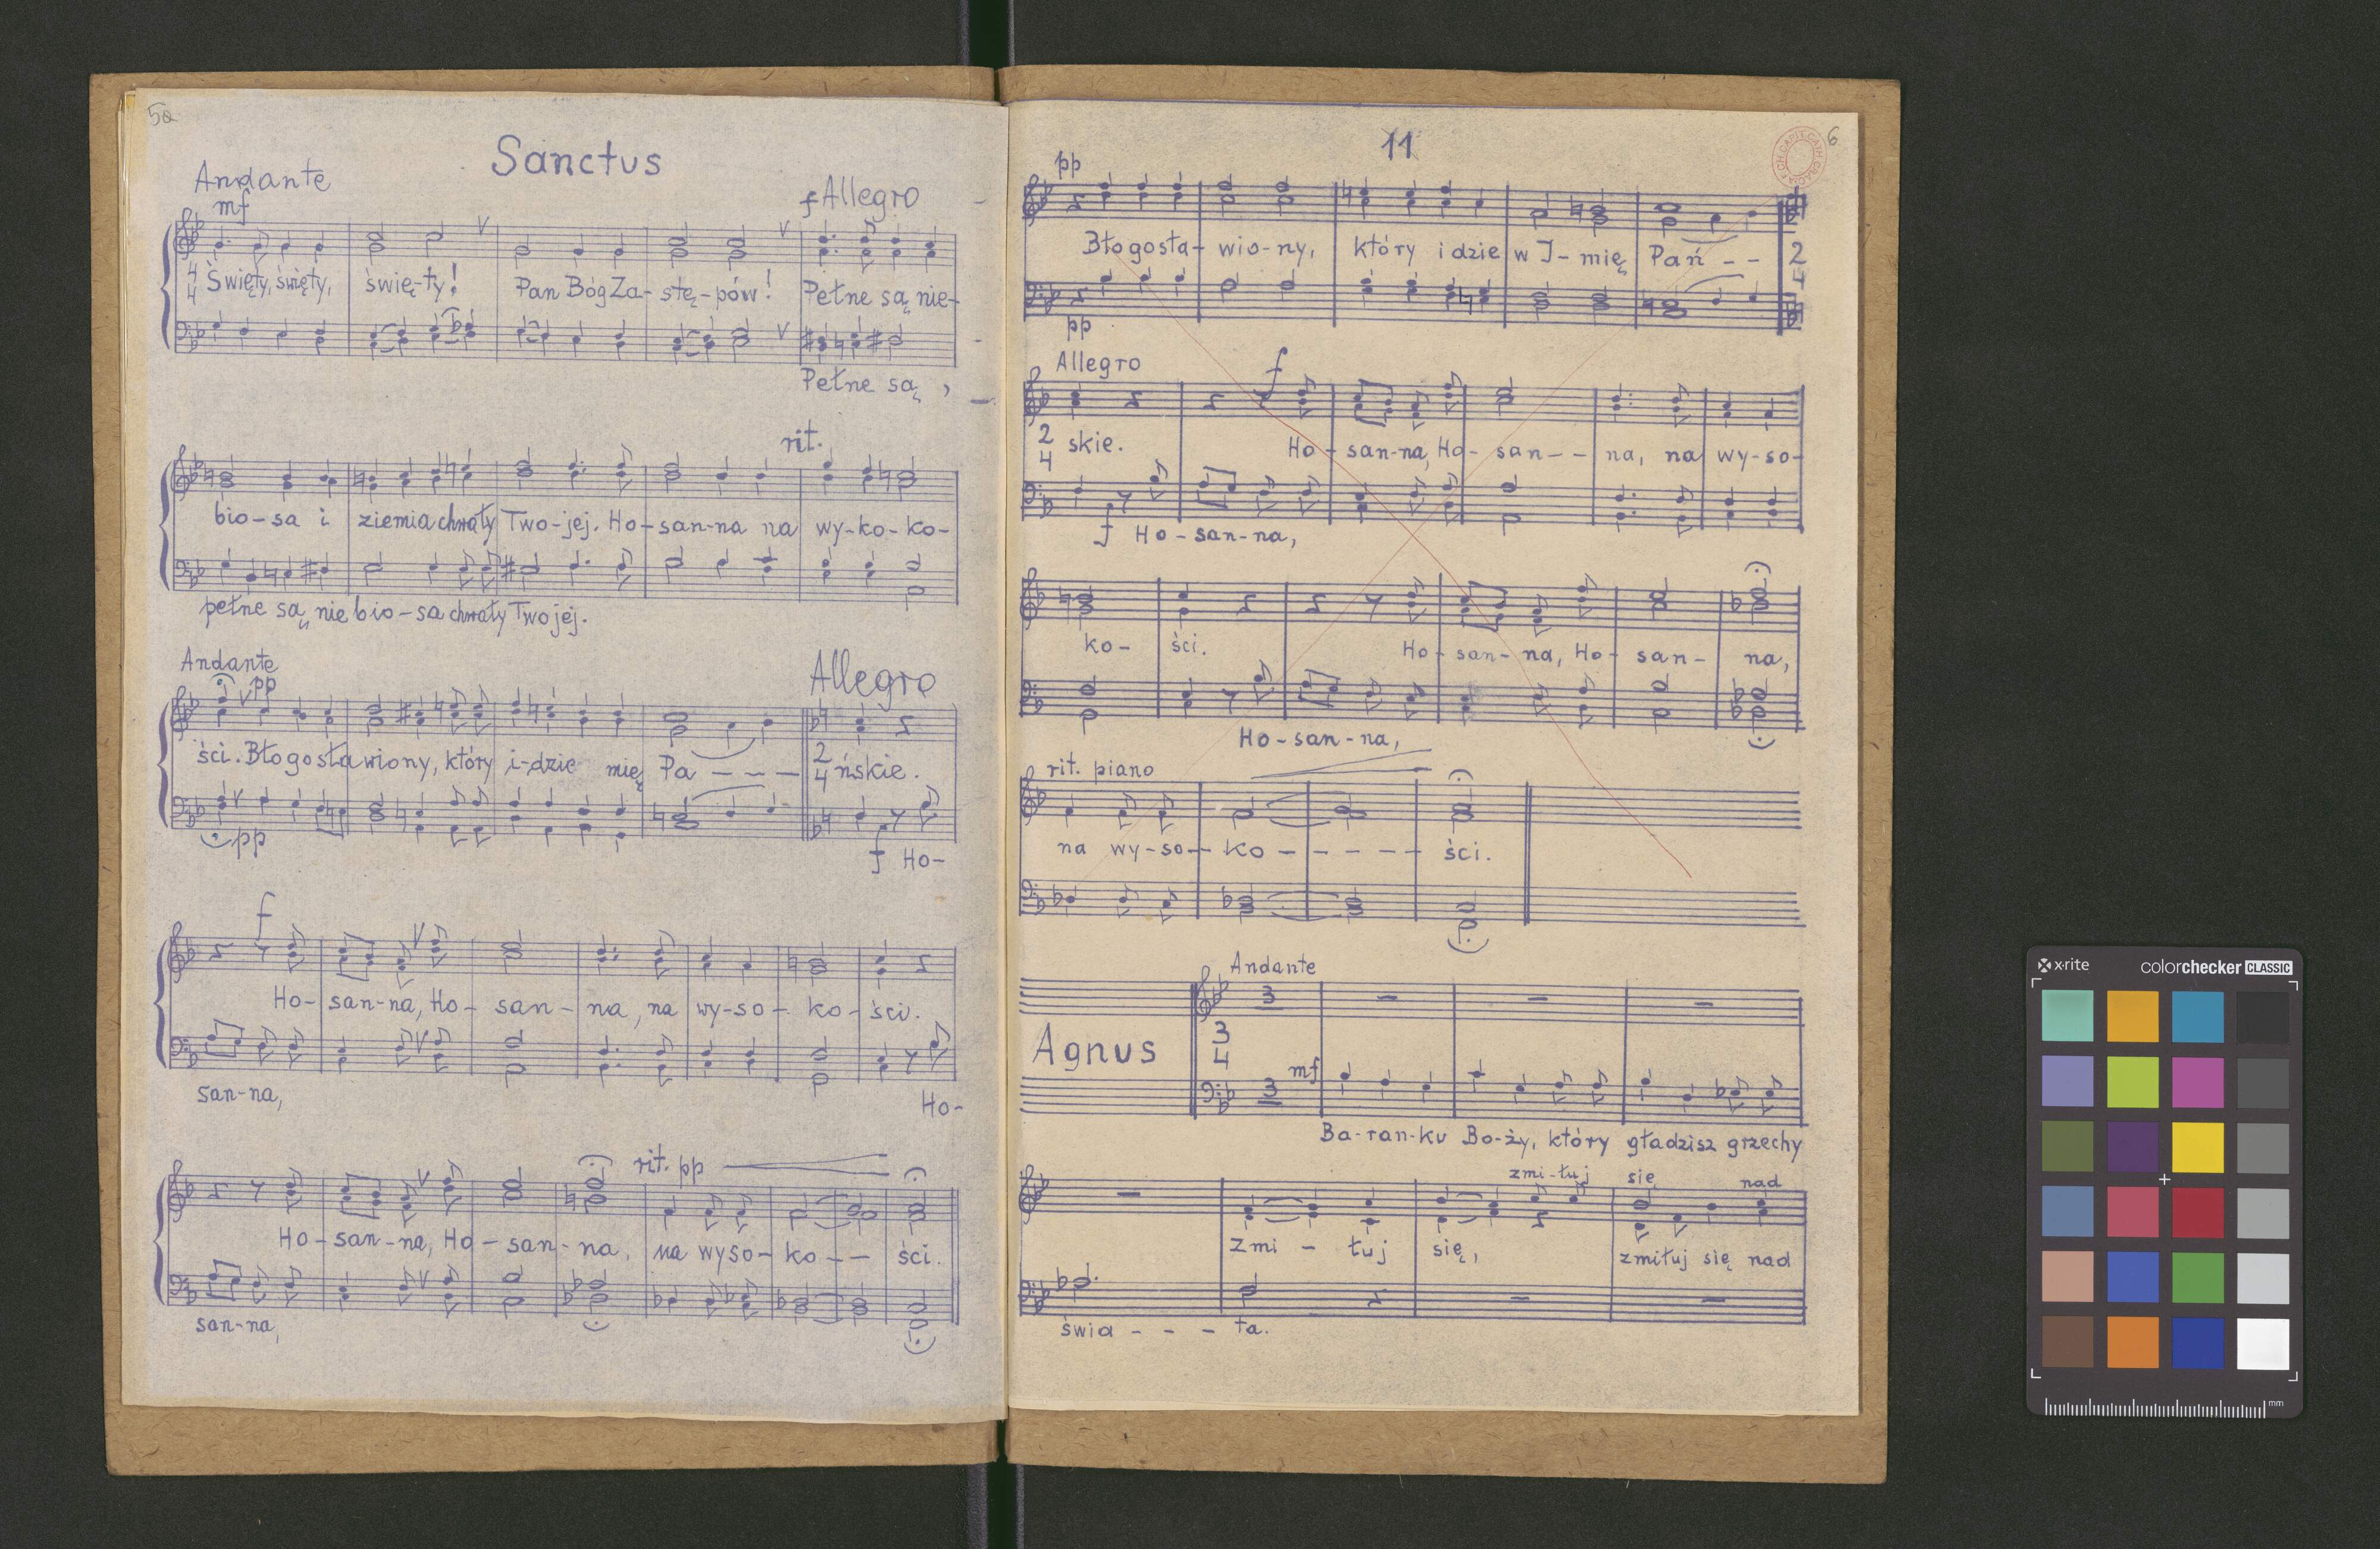 5a
Sanctus
Andante
mf
f Allegro
4 4 Święty, święty, świę-ty! Pan Bóg Za- stę-pów! Pełne są nie-
Pełne są,
rit.
bio-sa i ziemia chwały Two-jej. Ho-san-na na wy-ko-ko-
pełne są nie bio-sa chwały Twojej.
Andante
pp
Allegro
ści. Błogosławiony, który i-dzie mię Pa - - - 2 4 ńskie.
pp
f Ho-
f
Ho- san-na, Ho- san- na, na wy-so- ko- ści.
san-na,
Ho-
rit. pp
Ho-san-na, Ho-san-na, na wyso-ko-- ści.
san-na,
11
6
pp
Błogosła- wio-ny, który idzie w J-mię Pań -- 2 4
pp
Allegro
f
2 4 skie. Ho-san-na, Ho- san-- na, na wy-so-
f Ho-san-na,
ko- ści. Ho-san-na, Ho- san- na,
Ho-san-na,
rit. piano
na wy-so- ko - - - - - ści.
Andante
3
Agnus 3 4
mf
3
Ba-ran-ku Bo-ży, który gładzisz grzechy
zmi-łuj się nad
Zmi - łuj się, zmiłuj się nad
świa - - - ta.
x-rite colorchecker CLASSIC
mm